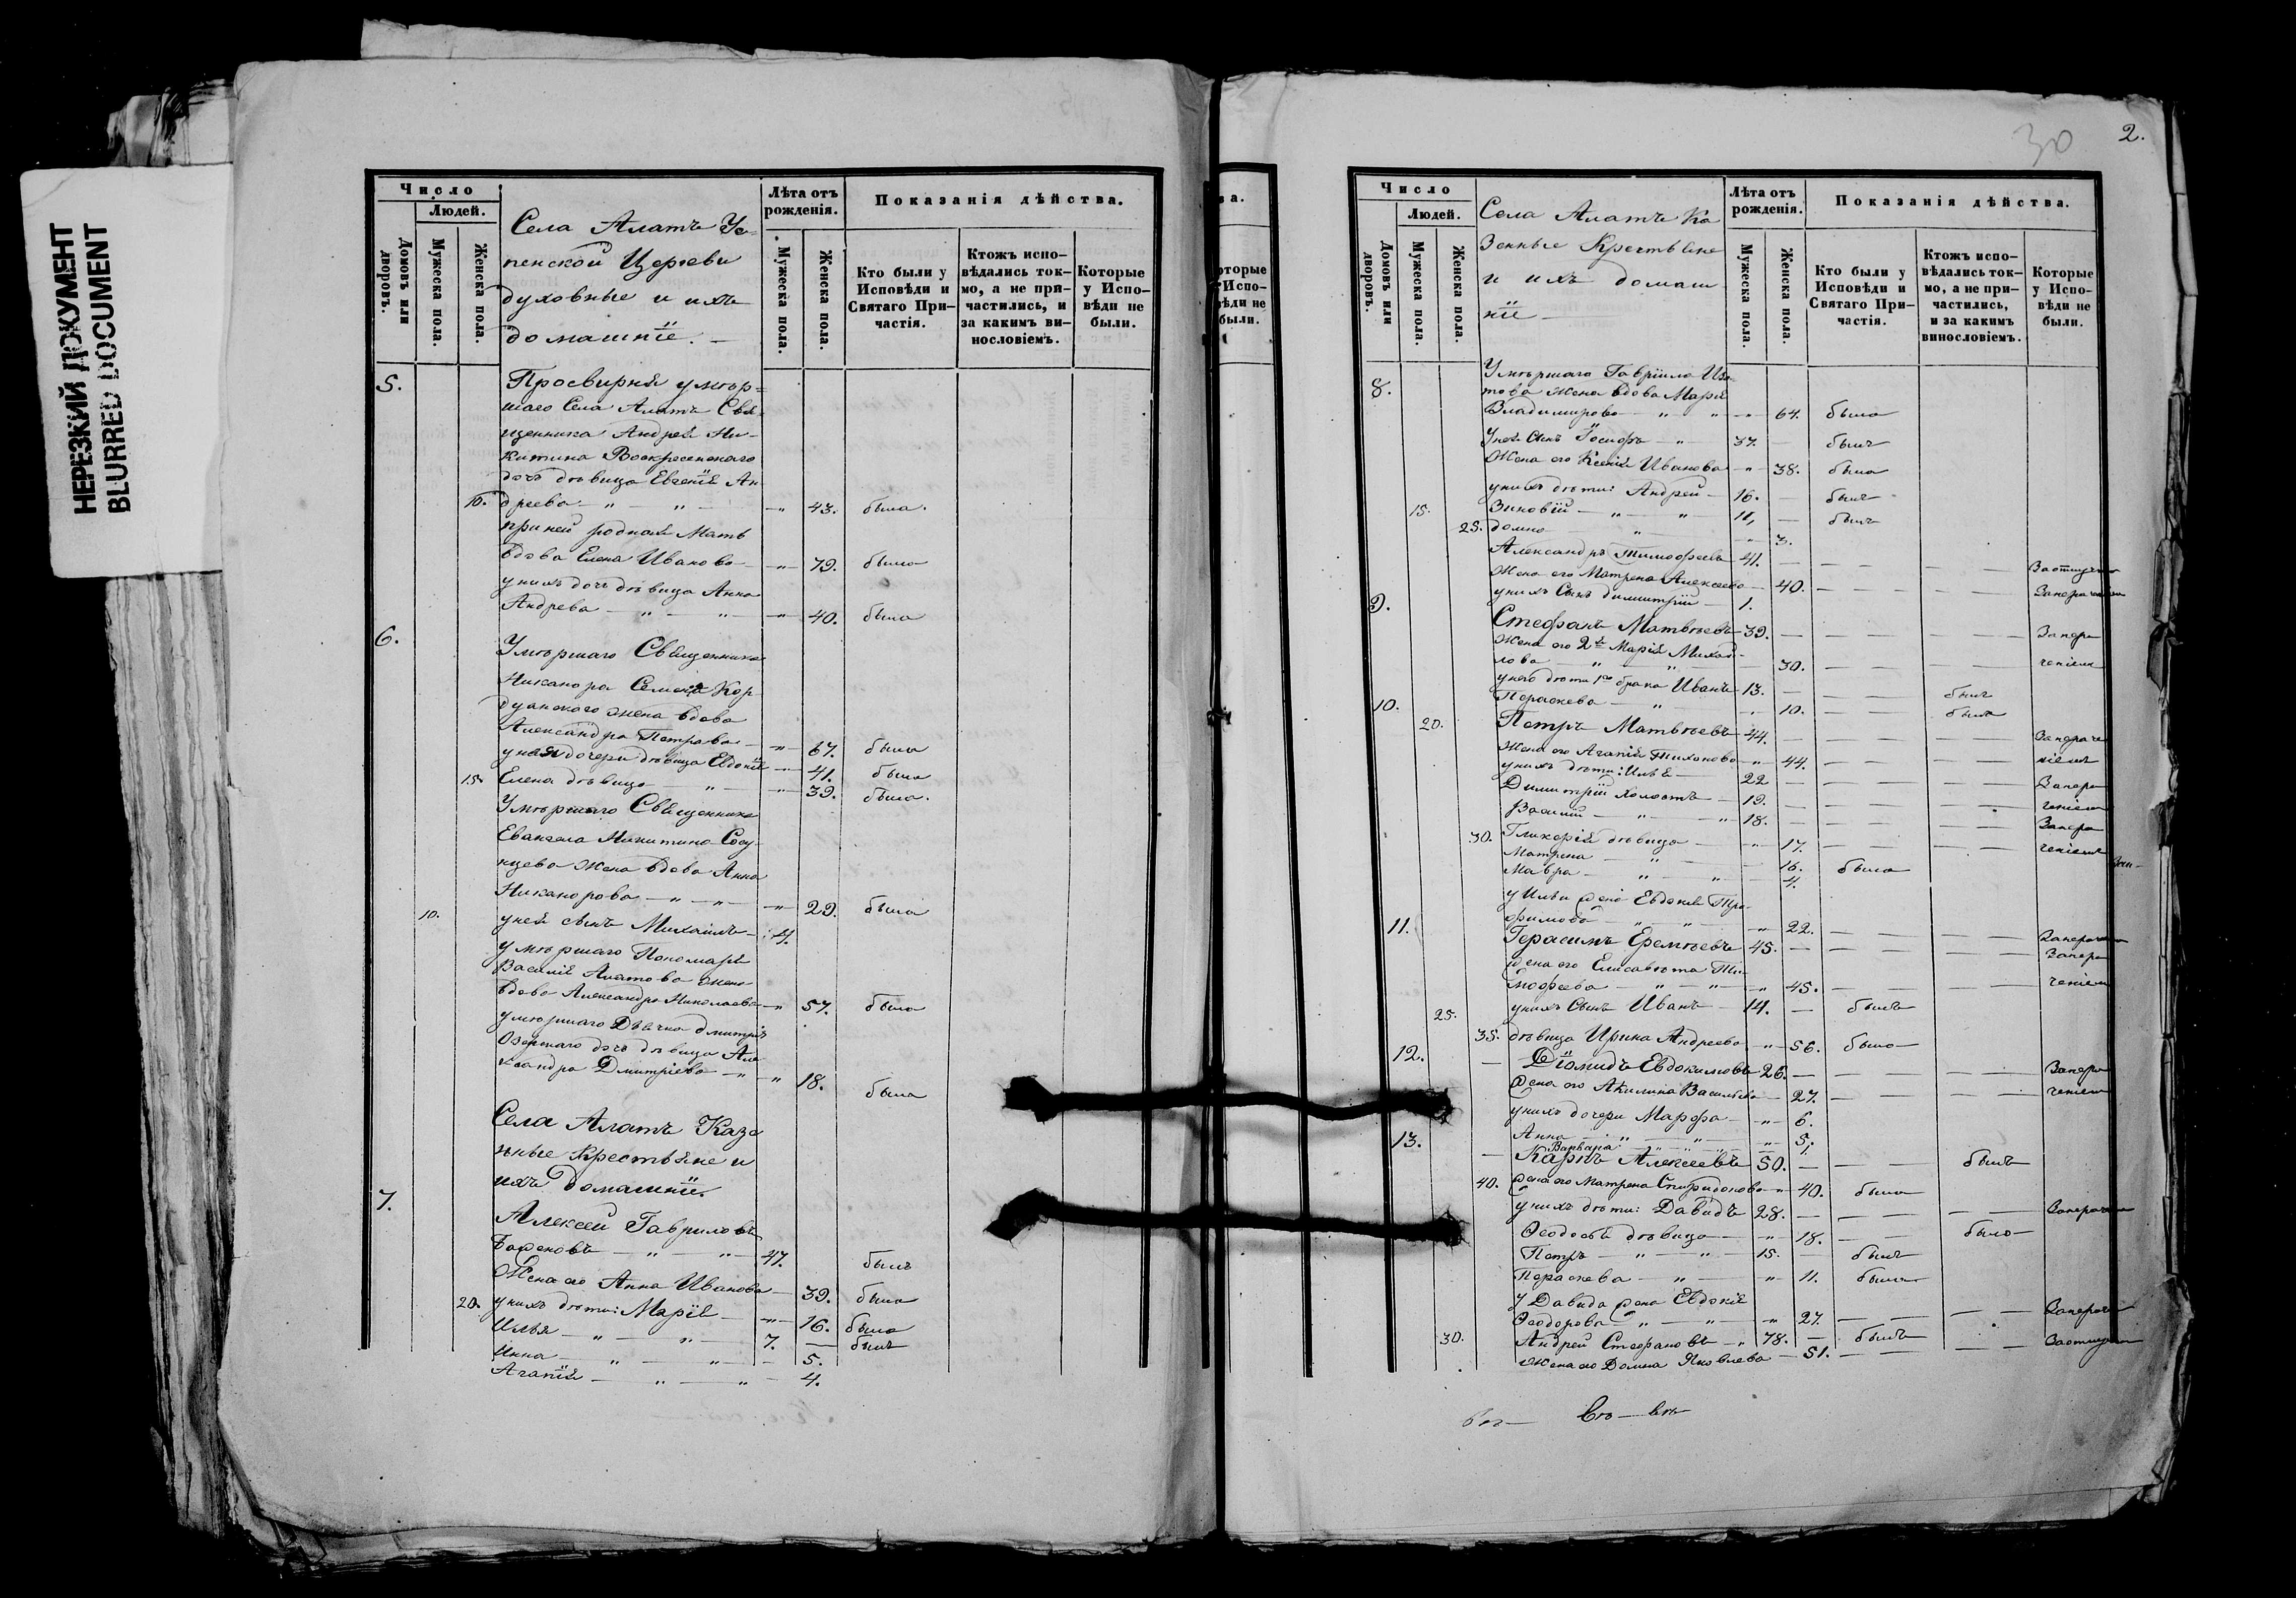 НЕРЕЗКИЙ ДОКУМЕНТ
BLURRED DOCUMENT
Число
Людей.
Домовъ или дворовъ.
Мужеска пола.
Женска пола.
Села Алатъ Ус-
пенской Церкви
духовные и ихъ
домашніе. —
Лѣта отъ рожденія.
Мужеска пола.
Женска пола.
Показанія дѣйства.
Кто были у Исповѣди и Святаго При-частія.
Ктожъ испо-вѣдались ток-мо, а не при-частились, и за какимъ ви-нословіемъ.
Которые у Испо-вѣди не были.
5. Просвирня умер-
шаго Села Алатъ Свя-
щенника Андрея Ни-
китина Воскресенскаго
дочь дѣвица Евгенія Ан-
10. дреева — " — " — 43. была.
при ней родная Мать
вдова Елена Иванова — " — 79. была
у нихъ дочь дѣвица Анна
Андреева — " — " — 40. была
6. Умершаго Священника
Никанора Семенова Кор
дуанского жена вдова
Александра Петрова — " — 67. была
у нея дочери дѣвица Евдокія — " — 41. была
15. Елена дѣвица — " — " 39. была.
Умершаго Священника
Евангела Никитина Сосу
нцева жена вдова Анна
Никанорова — " — " — " — 29. была
10. у ней сынъ Михаилъ — 4.
умершаго Пономаря
Василія Алатова жена
вдова Александра Николаева — " 57. была
умершаго Дьячка Дмитрія
Озерскаго дочь дѣвица Але
ксандра Дмитріева — " — " 18. была
Села Алатъ Казе
нные Крестьяне и
ихъ домашніе.
7. Алексей Гавриловъ
Баженовъ — " — " — 47. былъ
Жена его Анна Иванова — 39. была
20. у нихъ дѣти: Марія — " — 16. была
Илья — " — " — 7. — былъ
Анна — " — " — 5.
Агапія — " — " — 4.
30
2.
Число
Людей.
Домовъ или дворовъ.
Мужеска пола.
Женска пола.
Села Алатъ Ка
зенные Крестьяне
и ихъ домаш
ніе —
Лѣта отъ рожденія.
Мужеска пола.
Женска пола.
Показанія дѣйства.
Кто были у Исповѣди и Святаго При-частія.
Ктожъ испо-вѣдались ток-мо, а не при-частились, и за какимъ винословіемъ.
Которые у Испо-вѣди не были.
8. Умершаго Гавріила
жена вдова Марія
Владимирова — " — " — 64. была
У ней Сынъ Іосифъ — " 37. — былъ
Жена его Ксенія Иванова — " — 38. была
у нихъ дѣти: Андрей — 16. — былъ
15. Зиновій — " — " 11, — былъ
25. Домна " — " 3.
Александръ Тимофеевъ 41. — — — — За отлуч
Жена его Матрена Алексеева — 40. — — — — Запераченіемъ
у нихъ Сынъ Димитрій — 1.
9. Стефанъ Матвѣевъ — 39. — — — — Запера
Жена его 2я Марія Михай-
лова — " — " — 30. — — — — ченіемъ
у него дѣти 1го брака Иванъ — 13. — — — былъ
10. Параскева — " — " 10. — — была
20. Петръ Матвѣевъ — 44. — — — — Запераче
Жена его Агапія Тихонова — " 44. — — — — ніемъ
у нихъ дѣти: Илья — 22 — — — — Запера
Димитрій холостъ — 19. — — — — ченіемъ
Василій — " — " 18. — — — — Запера
30. Гликерія дѣвица — " — 17. — — — — ченіемъ
Матрена — " — 16. была
Мавра — " — " — 4.
у Ильи жена Евдокія Тро-
фимова — " — " — " 22. — — — — Запераченіемъ
11. Герасимъ Еремѣевъ 45. — — — — Запера
Жена его Елисавета Ти-
мофеева — " — " — " 45. — — — — ченіемъ
25. у нихъ Сынъ Иванъ — 14. — былъ
35. дѣвица Ирина Андреева — " — 56. была
12. — Діомидъ Евдокимовъ 26. — — — — Запера
Жена его Акилина Васильева — 27. — — — — ченіемъ
у нихъ дочери Марфа — " — 6.
Анна — " — " — " — 5.
Варвара — " — " — 1.
13. — Карпъ Алексеевъ 50. — — — былъ
40. Жена его Матрена Спиридонова — " 40. была
у нихъ дѣти: Давидъ 28. — — — — Запераченіемъ
Ѳеодосья дѣвица — " — 18. — — была
Петръ — " — " — 15. былъ
Параскева — " — " — 11. была
У Давида жена Евдокія
Ѳеодорова — " — " — " 27. — — — — Запераче
30. Андрей Стефановъ — " 78. — былъ
Жена его Домна Яковлева — 51. — — — — За отлуч